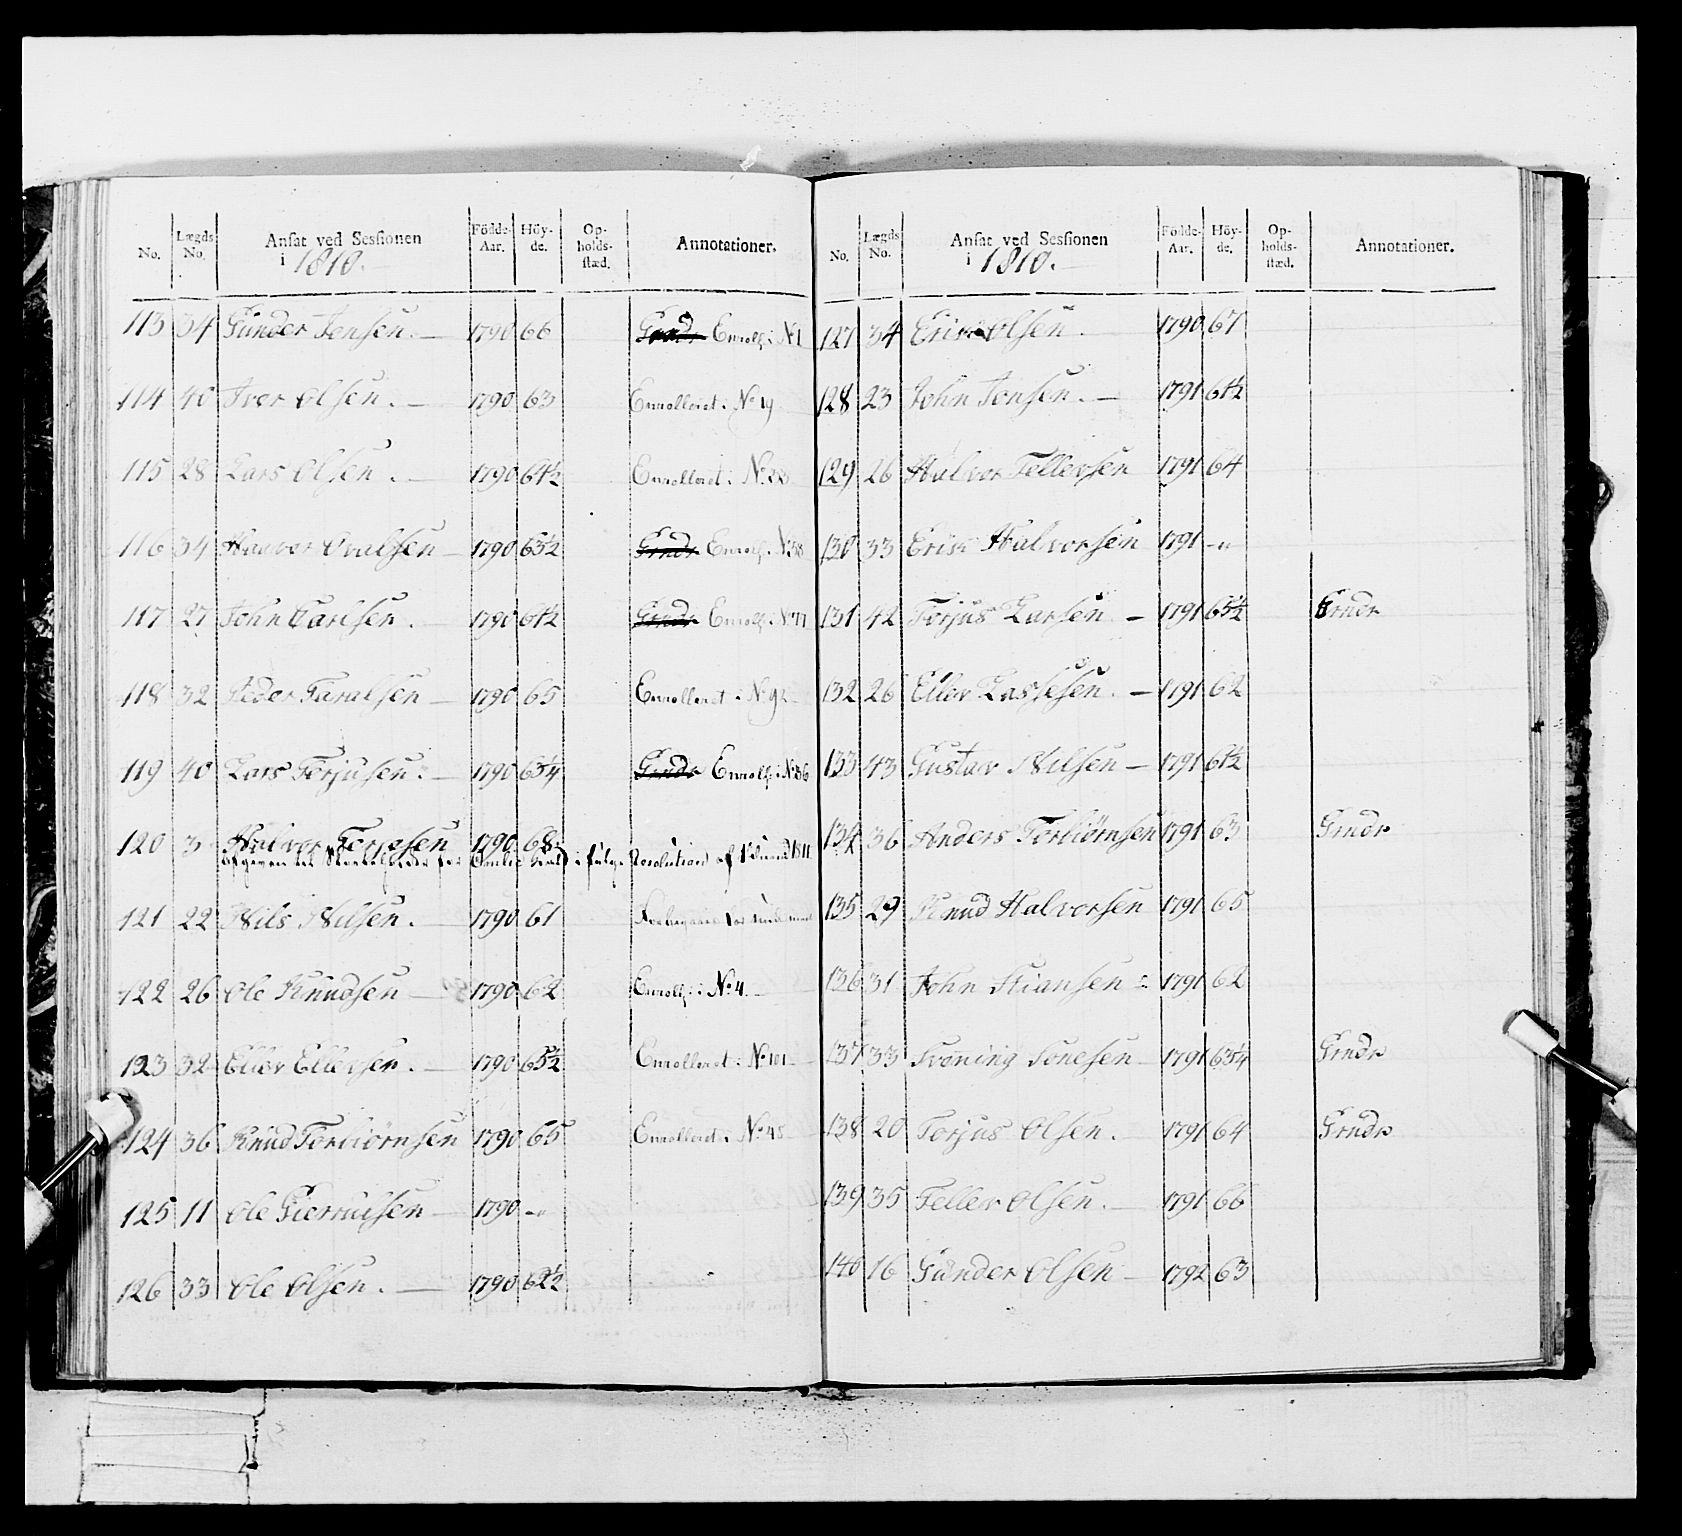 No. Lægds No. Ansat ved Sessionen i 1810. Födde-Aar. Höy-de. Op-holds-stæd. Annotationer.
113 34 Gunder Jensen. 1790 66 Grndr Enrolh: i No 1
114 40 Iver Olsen. 1790 63 Enrolleret i No 19
115 28 Lars Olsen. 1790 64½ Enrolleret i No 23
116 34 Haavor Ovalsen 1790 63½ Grndr Enrolh: i No 38
117 27 John Carlsen. 1790 61½ Grndr Enrolh: i No 77
118 32 Peder Taralsen 1790 65 Enrolleret i No 92
119 40 Lars Torjusen. 1790 63¼ Grndr Enrolh: i No 36
120 3 Halvor Terjesen 1790 68
afgiven til i følge Resolution af 1811
121 22 Nils Nilsen. 1790 61
122 26 Ole Knudsen 1790 62 Enrolh: i No 4.
123 32 Ellev Ellevsen. 1790 65½ Enrolleret i No 101
124 36 Knud Torbiörnsen 1790 65 Enrolleret i No 45
125 11 Ole 1790 -"
126 33 Ole Olsen. 1790 62½
No. Lægds No. Ansat ved Sessionen i 1810. Födde-Aar. Höy-de. Op-holds-stæd. Annotationer.
127 34 Erik Olsen. 1790 67
128 23 John Jensen. 1791 61½
129 26 Halvor Tellevsen 1791 64
130 33 Erik Halvorsen 1791 -"
131 42 Torjus Larsen 1791 65½ Grndr
132 26 Ellev Lassesen. 1791 62
133 43 Gustav Nilsen 1791 61½
134 36 Anders Torbiörnsen 1791 63 Grndr
135 29 Knud Halvorsen 1791 65
136 31 John Stiansen 1791 62
137 33 Trøning Tonesen 1791 63¼ Grndr
138 20 Torjus Olsen. 1791 64 Grndr
139 35 Tellev Olsen. 1791 66
140 16 Gunder Olsen 1792 63